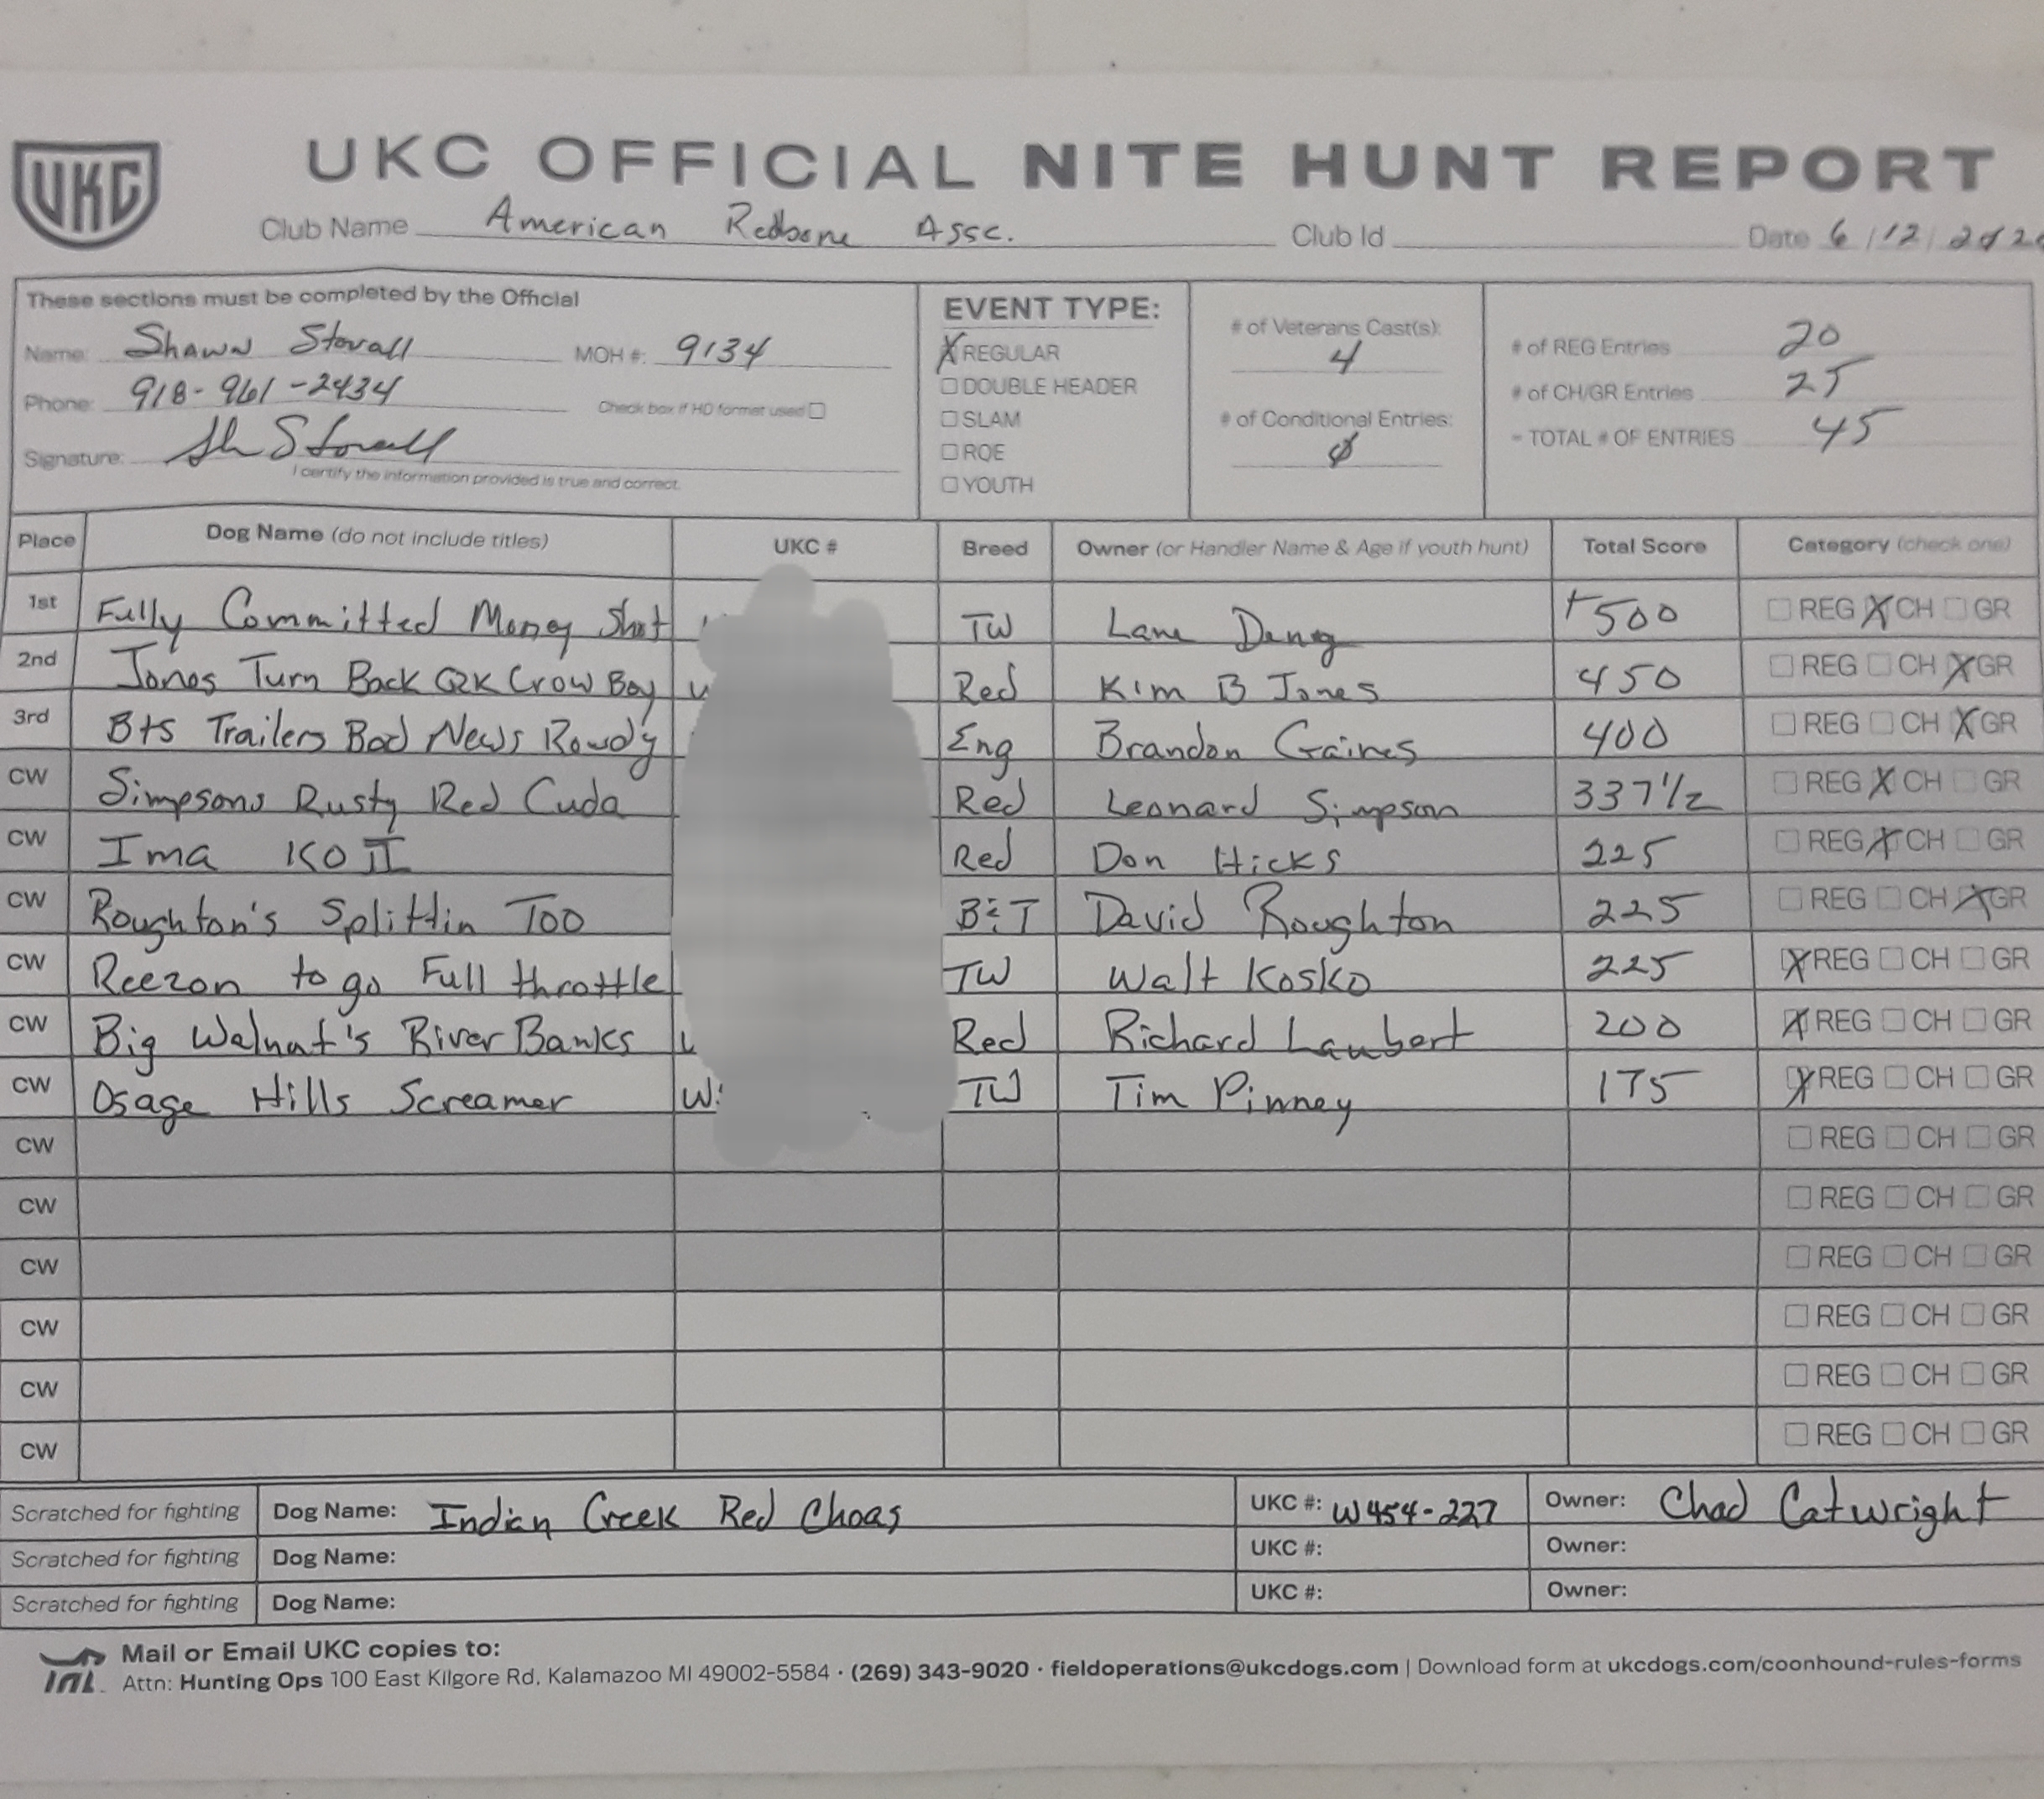 UKC
UKC OFFICIAL NITE HUNT REPORT
Club Name American Redbone Assc. Club Id Date 6/12/202
These sections must be completed by the Official
Name: Shawn Stovall MOH #: 9134
Phone: 918-961-2434 Check box if HD format used
Signature: Sh Stovall
I certify the information provided is true and correct.
EVENT TYPE:
X REGULAR
DOUBLE HEADER
SLAM
RQE
YOUTH
# of Veterans Cast(s):
4
# of Conditional Entries:
0
# of REG Entries 20
# of CH/GR Entries 25
= TOTAL # OF ENTRIES 45
Place Dog Name (do not include titles) UKC # Breed Owner (or Handler Name & Age if youth hunt) Total Score Category (check one)
1st Fully Committed Money Shot TW Lane +500 REG X CH GR
2nd Jones Turn Back Crow Boy Red Kim B Jones 450 REG CH X GR
3rd Bts Trailers Bad News Rowdy Eng Brandon Gaines 400 REG CH X GR
CW Simpsons Rusty Red Cuda Red Leonard Simpson 337 1/2 REG X CH GR
CW Ima KO II Red Don Hicks 225 REG X CH GR
CW Roughton's Splittin Too B&T David Roughton 225 REG CH X GR
CW Reezon to go Full throttle TW Walt Kosko 225 X REG CH GR
CW Big Walnut's River Banks Red Richard Lambert 200 X REG CH GR
CW Osage Hills Screamer W TW Tim Pinney 175 X REG CH GR
CW REG CH GR
CW REG CH GR
CW REG CH GR
CW REG CH GR
CW REG CH GR
CW REG CH GR
Scratched for fighting Dog Name: Indian Creek Red Choas UKC #: W454-227 Owner: Chad Catwright
Scratched for fighting Dog Name: UKC #: Owner:
Scratched for fighting Dog Name: UKC #: Owner:
Mail or Email UKC copies to:
Attn: Hunting Ops 100 East Kilgore Rd, Kalamazoo MI 49002-5584 · (269) 343-9020 · fieldoperations@ukcdogs.com | Download form at ukcdogs.com/coonhound-rules-forms